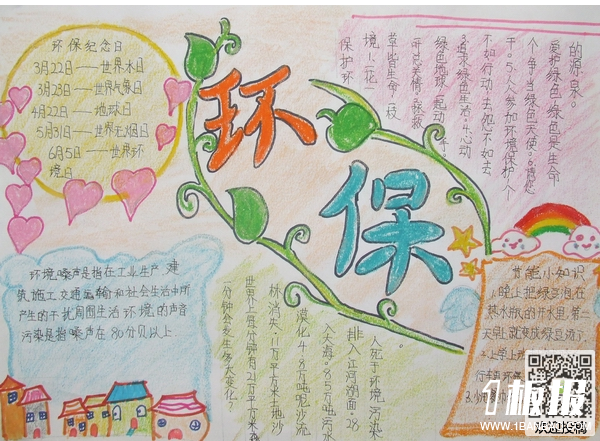 环保
环保纪念日
3月22日——世界水日
3月23日——世界气象日
4月22日——地球日
5月31日——世界无烟日
6月5日——世界环
境日
保护环
境1.一花一
草皆生命,一枝
绿色地球,起动
3.追求绿色生活,
不如行动去,怨不如去
干。5.人人参加环境保护,个
个争当绿色天使。6.
爱护绿色,绿色是生命
的源泉。
环境噪声是指在工业生产、建
筑施工、交通运输和社会生活中所
产生的干扰周围生活环境的声音
污染是指噪声在80分贝以上
人死于环境污染
排入江河湖面;28
入大海。85万吨水
漠化4.8万吨泥沙流
林消失,11万平方米土地沙
世界上每分钟有21万平方米森
一分钟会发生多大变化?
节能小知识
1.晚上把绿豆泡在
热水瓶的开水里,第二
天早就变成绿豆汤了。
2.上学上
1板报
WWW.1BANBAO.COM
欢迎投稿